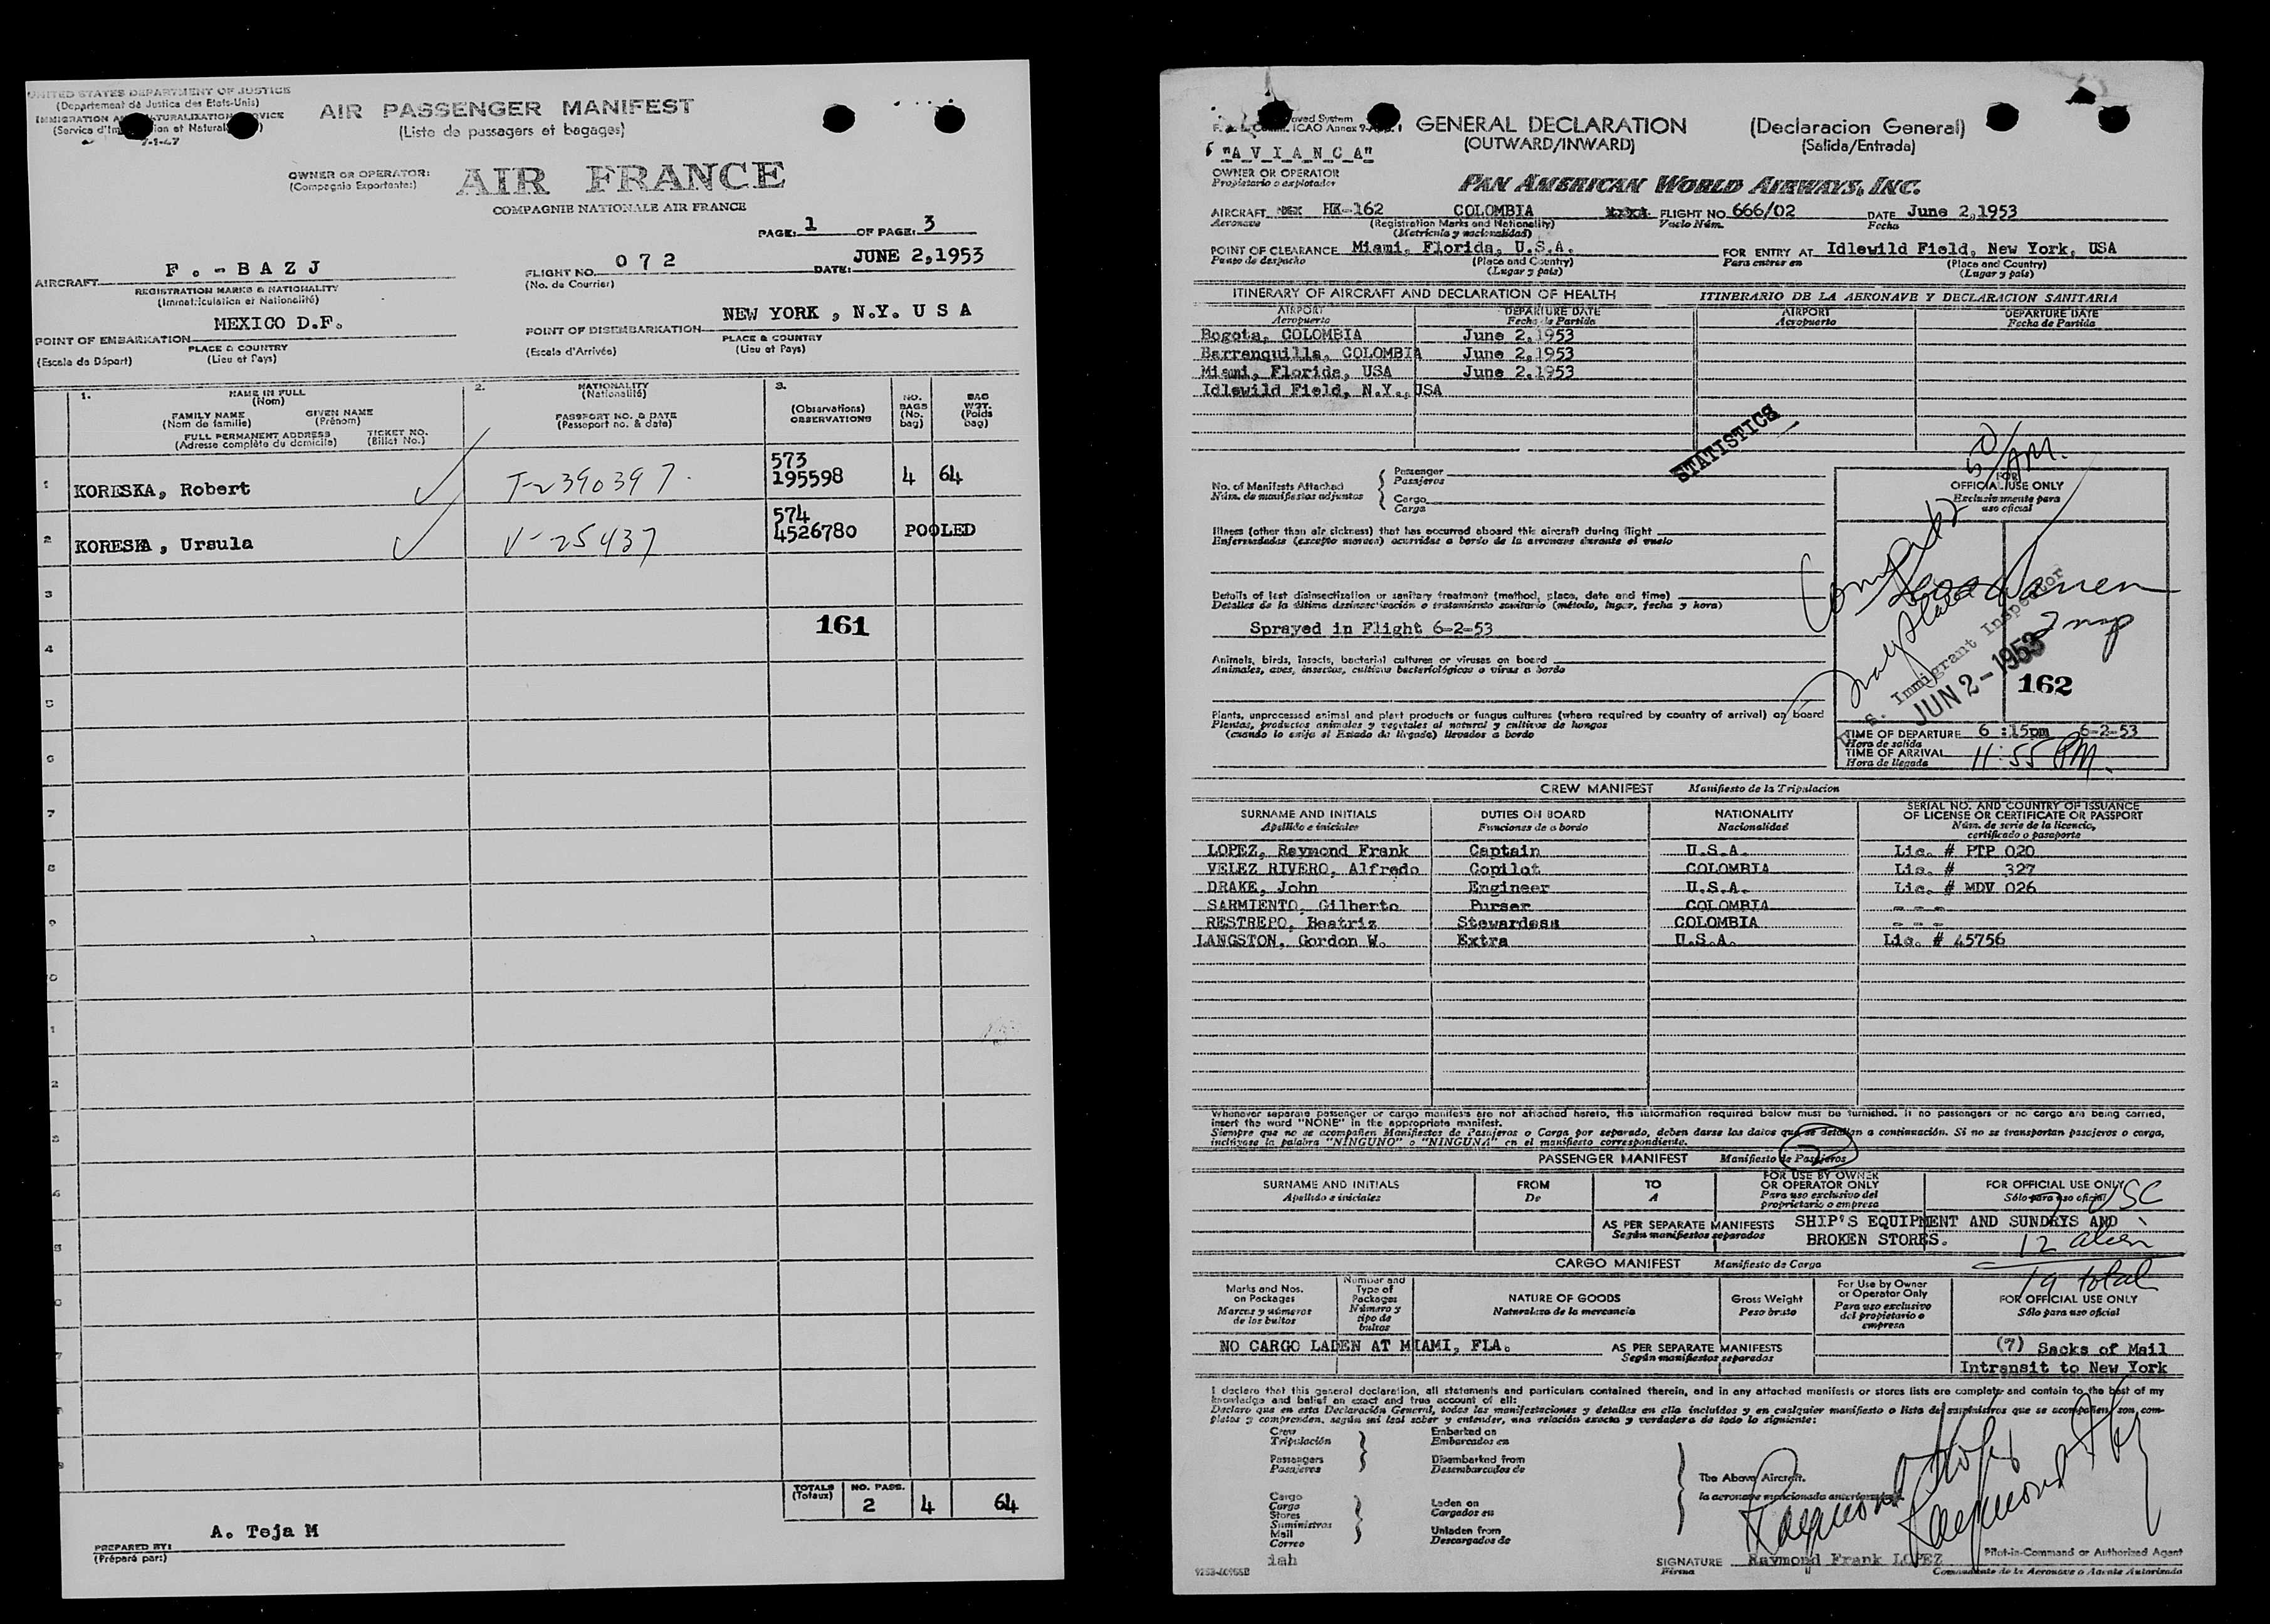 UNITED STATES DEPARTMENT OF JUSTICE
(Departement de Justice des Etats-Unis)
IMMIGRATION AND NATURALIZATION SERVICE
(Service d'Immigration et Natural)
7-1-47
AIR PASSENGER MANIFEST
(Liste de passagers et bagages)
OWNER OR OPERATOR:
(Compagnie Exportante:)
AIR FRANCE
COMPAGNIE NATIONALE AIR FRANCE
PAGE: 1 OF PAGE: 3
AIRCRAFT F.-BAZJ
REGISTRATION MARKS & NATIONALITY
(Immatriculation et Nationalité)
FLIGHT NO. 072
(No. de Courrier)
DATE: JUNE 2,1953
POINT OF EMBARKATION MEXICO D.F.
PLACE & COUNTRY
(Escale de Départ) (Lieu et Pays)
POINT OF DISEMBARKATION NEW YORK , N.Y. U S A
PLACE & COUNTRY
(Escale d'Arrivée) (Lieu et Pays)
1. NAME IN FULL
(Nom)
FAMILY NAME GIVEN NAME
(Nom de famille) (Prénom)
FULL PERMANENT ADDRESS TICKET NO.
(Adresse complète du domicile) (Billet No.)
2. NATIONALITY
(Nationalité)
PASSPORT NO. & DATE
(Passeport no. & date)
3.
(Observations)
OBSERVATIONS
NO. BAGS
(No. bag)
BAG WGT.
(Poids bag)
1 KORESKA, Robert T-2390397. 573
195598 4 64
2 KORESKA, Ursula V-25437 574
4526780 POOLED
3
161
4
5
6
7
8
9
0
1
2
3
4
5
6
7
8
9
TOTALS
(Totaux)
NO. PASS.
2 4 64
A. Teja M
PREPARED BY:
(Préparé par:)
ICAO Annex 9-App. 1
GENERAL DECLARATION (Declaracion General)
(OUTWARD/INWARD) (Salida/Entrada)
"A V I A N C A"
OWNER OR OPERATOR
Propietario o explotador
PAN AMERICAN WORLD AIRWAYS, INC.
AIRCRAFT HK-162 COLOMBIA FLIGHT NO. 666/02 DATE June 2,1953
Aeronave (Registration Marks and Nationality) Vuelo Núm. Fecha
(Matrícula y nacionalidad)
POINT OF CLEARANCE Miami, Florida, U.S.A. FOR ENTRY AT Idlewild Field, New York, USA
Punto de despacho (Place and Country) Para entrar en (Place and Country)
(Lugar y país) (Lugar y país)
ITINERARY OF AIRCRAFT AND DECLARATION OF HEALTH ITINERARIO DE LA AERONAVE Y DECLARACION SANITARIA
AIRPORT DEPARTURE DATE AIRPORT DEPARTURE DATE
Aeropuerto Fecha de Partida Aeropuerto Fecha de Partida
Bogota, COLOMBIA June 2,1953
Barranquilla, COLOMBIA June 2,1953
Miami, Florida, USA June 2,1953
Idlewild Field, N.Y., USA
STATISTICS
No. of Manifests Attached
Núm. de manifiestos adjuntos
Passenger
Pasajeros
Cargo
Carga
FOR OFFICIAL USE ONLY
Exclusivamente para uso oficial
Illness (other than air sickness) that has occurred aboard this aircraft during flight
Enfermedades (excepto mareos) ocurridas a bordo de la aeronave durante el vuelo
Details of last disinsectization or sanitary treatment (method, place, date and time)
Detalles de la última desinsectización o tratamiento sanitario (método, lugar, fecha y hora)
Sprayed in Flight 6-2-53
Animals, birds, insects, bacterial cultures or viruses on board
Animales, aves, insectos, cultivos bacteriológicos o virus a bordo
Plants, unprocessed animal and plant products or fungus cultures (where required by country of arrival) on board
Plantas, productos animales y vegetales al natural y cultivos de hongos
(cuando lo exija el Estado de llegada) llevados a bordo
U. S. Immigrant Inspector
JUN 2-1953
162
TIME OF DEPARTURE 6 :15pm 6-2-53
Hora de salida
TIME OF ARRIVAL 11:55 PM.
Hora de llegada
CREW MANIFEST Manifiesto de la Tripulacion
SURNAME AND INITIALS DUTIES ON BOARD NATIONALITY SERIAL NO. AND COUNTRY OF ISSUANCE
OF LICENSE OR CERTIFICATE OR PASSPORT
Apellido e iniciales Funciones de a bordo Nacionalidad Núm. de serie de la licencia,
certificado o pasaporte
LOPEZ, Raymond Frank Captain U.S.A. Lic. # PTP 020
VELEZ RIVERO, Alfredo Copilot COLOMBIA Lic. # 327
DRAKE, John Engineer U.S.A. Lic. # MDV 026
SARMIENTO, Gilberto Purser COLOMBIA - - -
RESTREPO, Beatriz Stewardess COLOMBIA - - -
LANGSTON, Gordon W. Extra U.S.A. Lic. # 45756
Whenever separate passenger or cargo manifests are not attached hereto, the information required below must be furnished. If no passengers or no cargo are being carried,
insert the word "NONE" in the appropriate manifest.
Siempre que no se acompañen Manifiestos de Pasajeros o Carga por separado, deben darse los datos que se detallan a continuación. Si no se transportan pasajeros o carga,
inclúyase la palabra "NINGUNO" o "NINGUNA" en el manifiesto correspondiente.
PASSENGER MANIFEST Manifiesto de Pasajeros
SURNAME AND INITIALS FROM TO FOR USE BY OWNER OR OPERATOR ONLY FOR OFFICIAL USE ONLY
Apellido e iniciales De A Para uso exclusivo del propietario o empresa Sólo para uso oficial
7 USC
AS PER SEPARATE MANIFESTS SHIP'S EQUIPMENT AND SUNDRYS AND
Según manifiestos separados BROKEN STORES.
12 alien
19 total
CARGO MANIFEST Manifiesto de Carga
Marks and Nos. on Packages
Marcas y números de los bultos
Number and Type of Packages
Número y tipo de bultos
NATURE OF GOODS
Naturaleza de la mercancia
Gross Weight
Peso bruto
For Use by Owner or Operator Only
Para uso exclusivo del propietario o empresa
FOR OFFICIAL USE ONLY
Sólo para uso oficial
NO CARGO LADEN AT MIAMI, FLA. AS PER SEPARATE MANIFESTS (7) Sacks of Mail
Según manifiestos separados Intransit to New York
I declare that this general declaration, all statements and particulars contained therein, and in any attached manifests or stores lists are complete and contain to the best of my
knowledge and belief an exact and true account of all:
Declaro que en esta Declaración General, todas las manifestaciones y detalles en ella incluidos y en cualquier manifiesto o lista de suministros que se acompañen, son com-
pletos y comprenden, según mi leal saber y entender, una relación exacta y verdadera de todo lo siguiente:
Crew Embarked on
Tripulación Embarcados en
Passengers Disembarked from
Pasajeros Desembarcados de
The Above Aircraft.
la aeronave mencionada anteriormente.
Cargo
Carga Laden on
Stores Cargados en
Suministros
Mail Unladen from
Correo Descargados de
iah
SIGNATURE Raymond Frank LOPEZ Pilot-in-Command or Authorized Agent
Firma Comandante de la Aeronave o Agente Autorizado